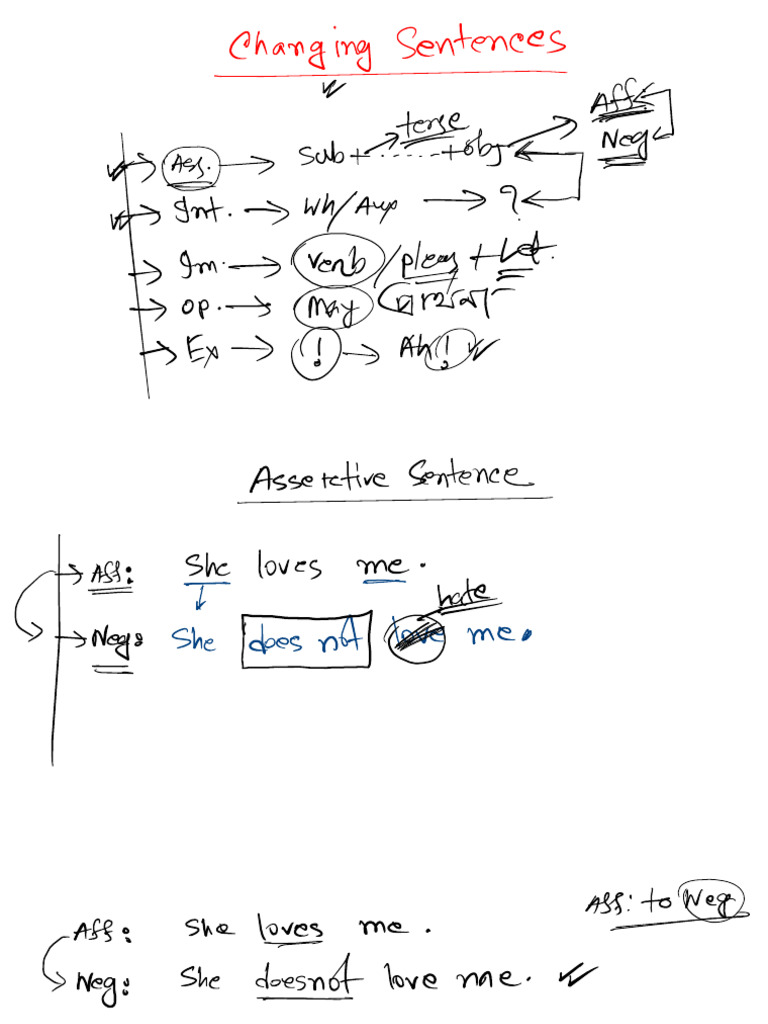 Changing Sentences
Ass. → Sub + tense ...... + obj → Aff Neg
Int. → Wh/Aux → ?
Im. → verb / pleas + Let.
OP. → May
Ex → ! → Ah!
Assertive Sentence
Aff: She loves me.
hate
Neg: She does not love me.
Aff: to Neg
Aff: She loves me.
Neg: She doesnot love me.